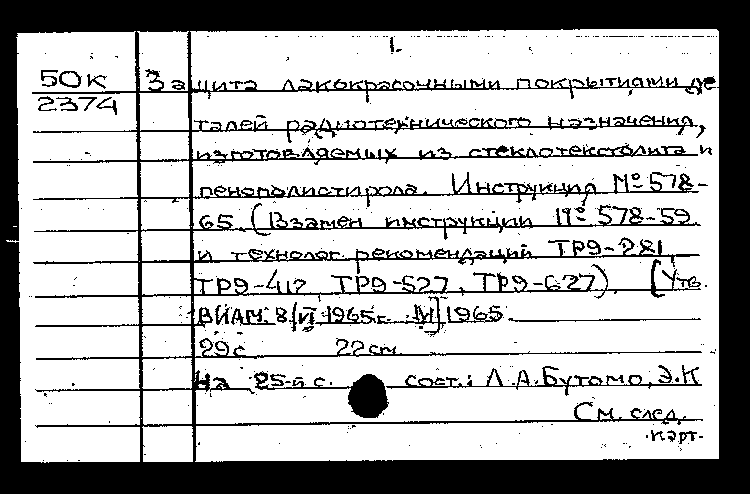 1.
50к
2374
Защита лакокрасочными покрытиями де
талей радиотехнического назначения,
изготовляемых из стеклотекстолита и
пенополистирола. Инструкция № 578-
65. (Взамен инструкции № 578-59
и технолог. рекомендаций ТР9-281,
ТР9-412, ТР9-527, ТР9-627). [Утв.
ВИАМ. 8/VI 1965г. М] 1965.
29с 22см.
На 25-й с. сост.: Л.А.Бутомо, Э.К
См. след.
карт.